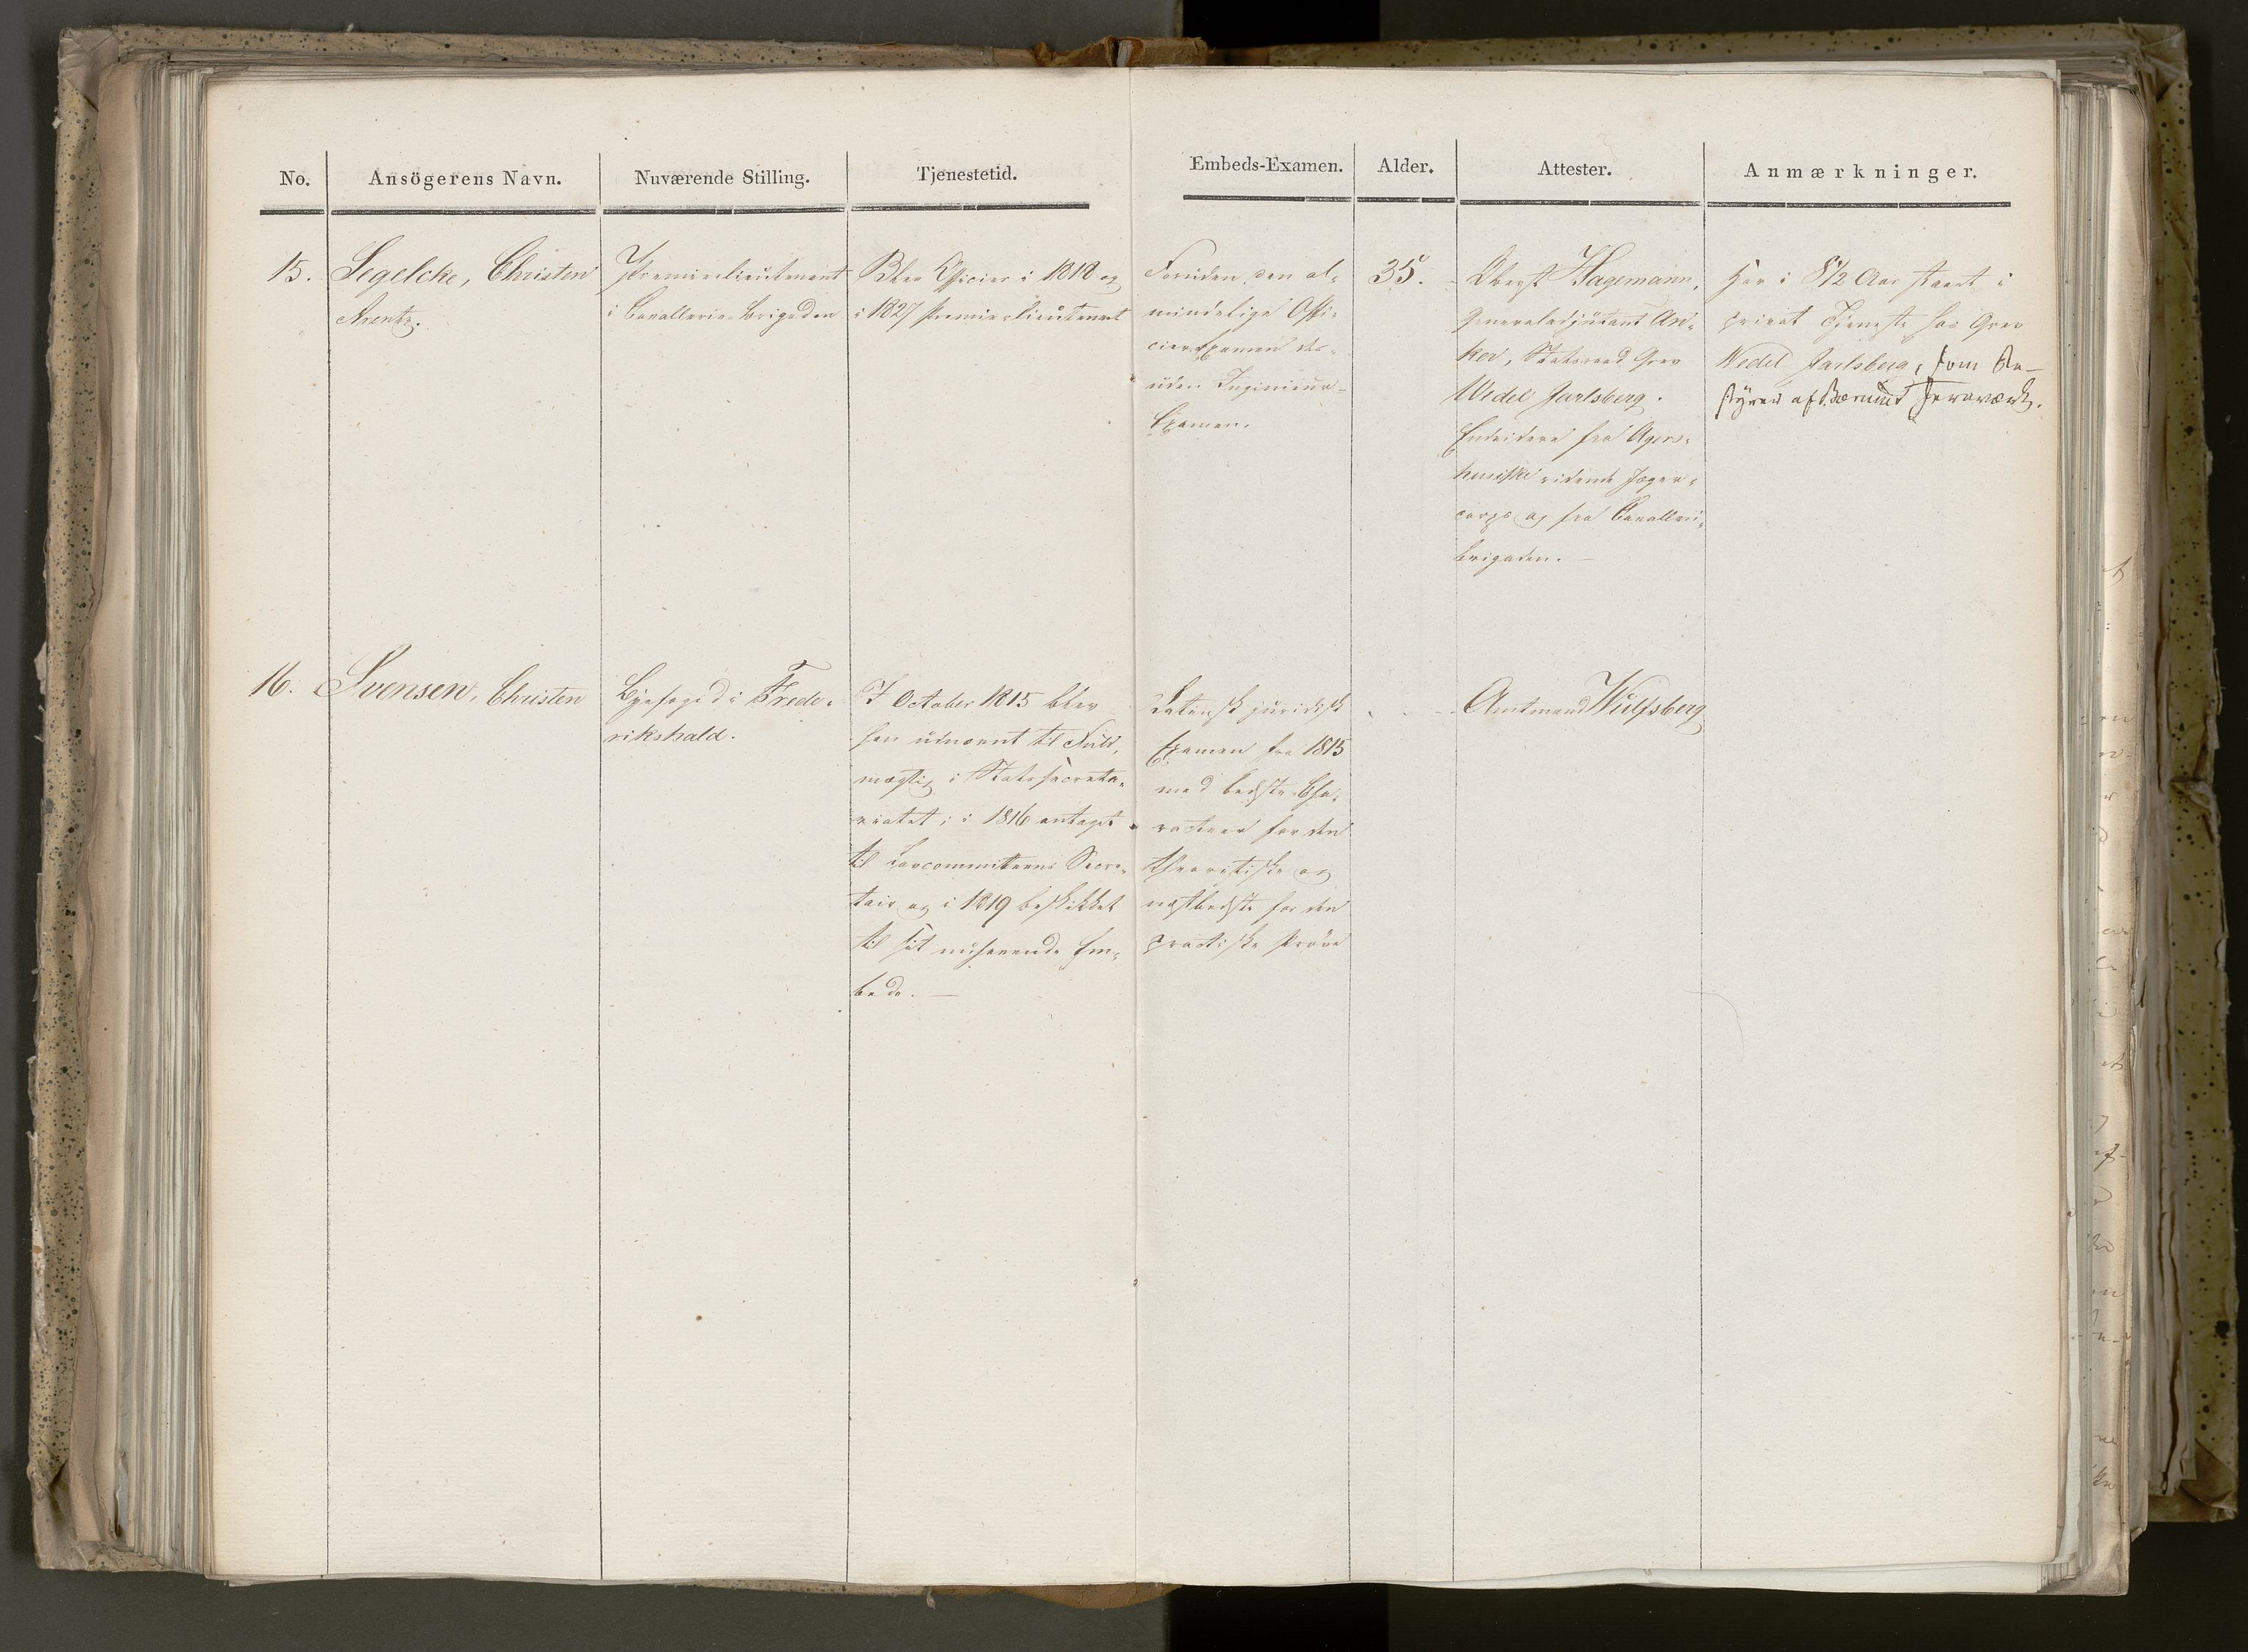 No.
Ansögerens Navn.
Nuværende Stilling.
Tjenestetid.
Embeds-Examen.
Alder.
Attester.
Anmærkninger.
15.
Segelcke, Christen
Arentz.
Premierlieutenant
i Cavallerie-Brigaden
Blev Officier i 1818 og
i 1827 Premierlieutenant
Foruden den al-
mindelige Offi-
cier Examen des-
uden Ingenieur-
Examen.
35.
Oberst Hagemann,
Generaladjutant An-
ker, Statsraad Grev
Wedel Jarlsberg.
Endvidere fra Agers-
huusiske ridende Jæger-
corps og fra Cavalleri-
brigaden. —
Har i 8 1/2 Aar staaet i
privat Tjeneste hos Grev
Wedel Jarlsberg, som Be-
styrer af Bærums Jernværk.
16.
Svensen, Christen
Byefoged i Frede-
rikshald.
I October 1815 blev
han udnævnt til Fuld-
mægtig i Statssecreta-
riatet; i 1816 antaget
til Lovcommitteens Secre-
tair og i 1819 beskikket
til sit nuhavende Em-
bede. —
Latinsk juridisk
Examen fra 1815
med bedste Cha-
racteer for den
theoretiske og
næstbedste for den
practiske Prøve
Amtmand Wulfsberg